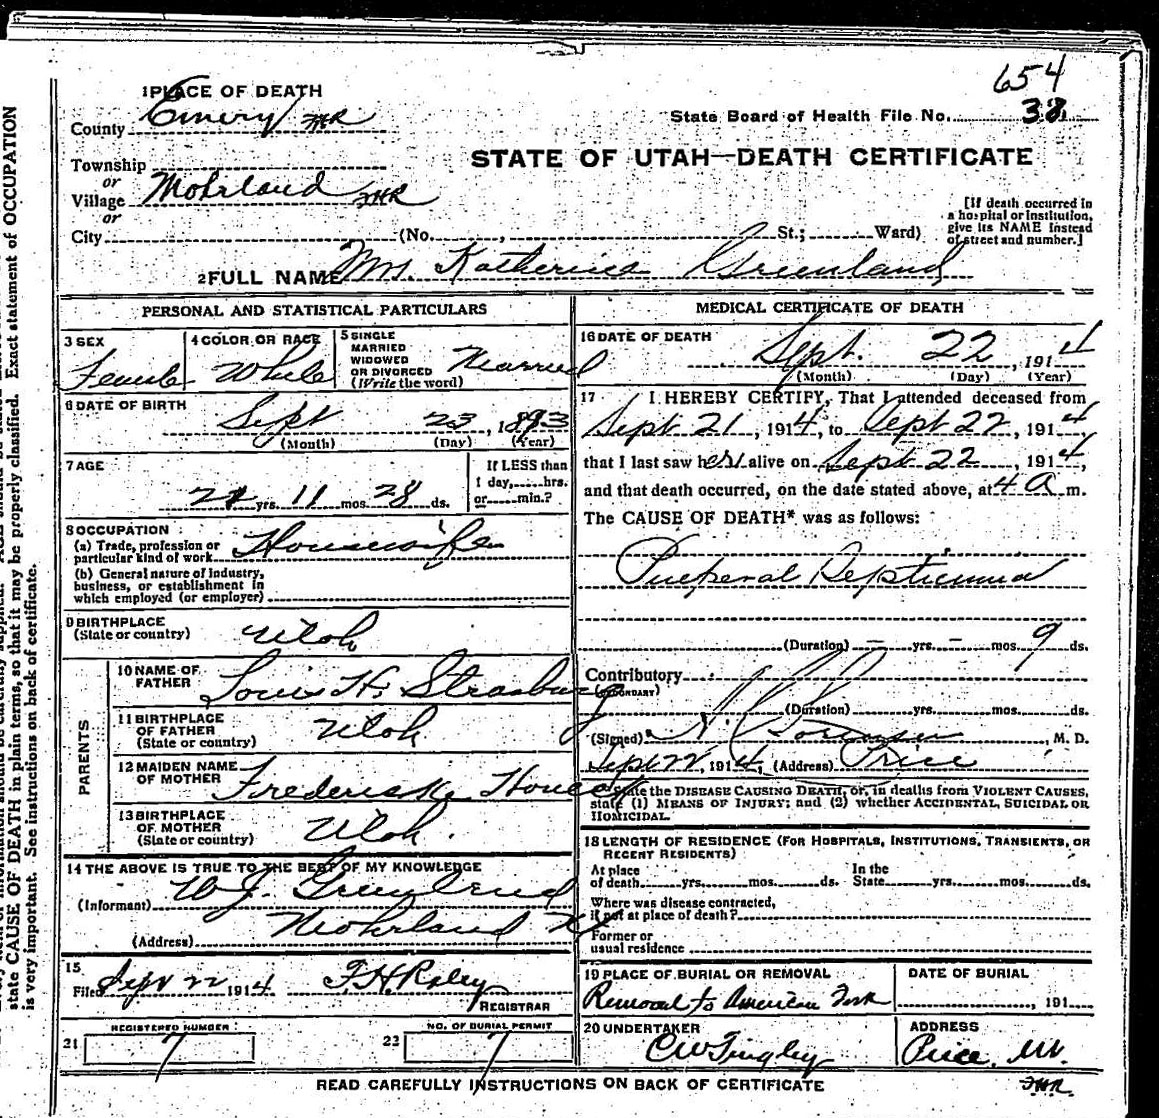 654
1 PLACE OF DEATH
County Emery FHR
State Board of Health File No. 38
STATE OF UTAH—DEATH CERTIFICATE
Township
or
Village Mohrland FHR
or
City (No. , St.; Ward)
[If death occurred in
a hospital or institution,
give its NAME instead
of street and number.]
2 FULL NAME Mrs. Katherine Greenland
PERSONAL AND STATISTICAL PARTICULARS
3 SEX
Female
4 COLOR OR RACE
White
5 SINGLE
MARRIED
WIDOWED
OR DIVORCED
(Write the word)
Married
6 DATE OF BIRTH
Sept 23, 1893
(Month) (Day) (Year)
7 AGE
yrs. 11 mos. 28 ds.
If LESS than
1 day,.....hrs.
or.....min.?
8 OCCUPATION
(a) Trade, profession or
particular kind of work Housewife
(b) General nature of industry,
business, or establishment in
which employed (or employer)
9 BIRTHPLACE
(State or country) Utah
PARENTS
10 NAME OF
FATHER Louis H. Strasburg
11 BIRTHPLACE
OF FATHER
(State or country) Utah
12 MAIDEN NAME
OF MOTHER Frederiske
13 BIRTHPLACE
OF MOTHER
(State or country) Utah.
14 THE ABOVE IS TRUE TO THE BEST OF MY KNOWLEDGE
(Informant) W J. Greenland
(Address) Mohrland
15
Filed Sept 22 1914 F. H. Roley
REGISTRAR
REGISTERED NUMBER
21 7
NO. OF BURIAL PERMIT
22 7
MEDICAL CERTIFICATE OF DEATH
16 DATE OF DEATH
Sept. 22, 1914
(Month) (Day) (Year)
17 I HEREBY CERTIFY, That I attended deceased from
Sept 21, 1914, to Sept 22, 1914,
that I last saw her alive on Sept 22, 1914,
and that death occurred, on the date stated above, at 4 a m.
The CAUSE OF DEATH* was as follows:
Puerperal Septicemia
(Duration) – yrs. – mos. 9 ds.
Contributory
(SECONDARY)
(Duration) yrs. mos. ds.
(Signed) Sorensen, M. D.
Sept 22, 1914, (Address) Price
*State the DISEASE CAUSING DEATH, or, in deaths from VIOLENT CAUSES,
state (1) MEANS OF INJURY; and (2) whether ACCIDENTAL, SUICIDAL OR
HOMICIDAL.
18 LENGTH OF RESIDENCE (FOR HOSPITALS, INSTITUTIONS, TRANSIENTS, OR
RECENT RESIDENTS)
At place
of death yrs. mos. ds.
In the
State yrs. mos. ds.
Where was disease contracted,
if not at place of death?
Former or
usual residence
19 PLACE OF BURIAL OR REMOVAL
Removal to American Fork
DATE OF BURIAL
, 191
20 UNDERTAKER
CW Tingley
ADDRESS
Price. Ut.
READ CAREFULLY INSTRUCTIONS ON BACK OF CERTIFICATE
FHR
state CAUSE OF DEATH in plain terms, so that it may be properly classified. Exact statement of OCCUPATION
is very important. See instructions on back of certificate.